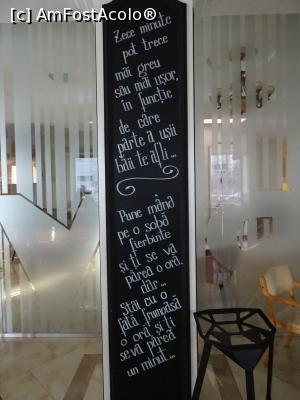 [c] AmFostAcolo®
Zece minute
pot trece
măi greu
său măi ușor,
în funcție
de căre
părte a ușii
băii te afli...
Pune mâna
pe o sobă
fierbinte
și ți se va
părea o oră,
dar...
Stăi cu o
fată frumoasă
o oră și ți
se va părea
un minut...